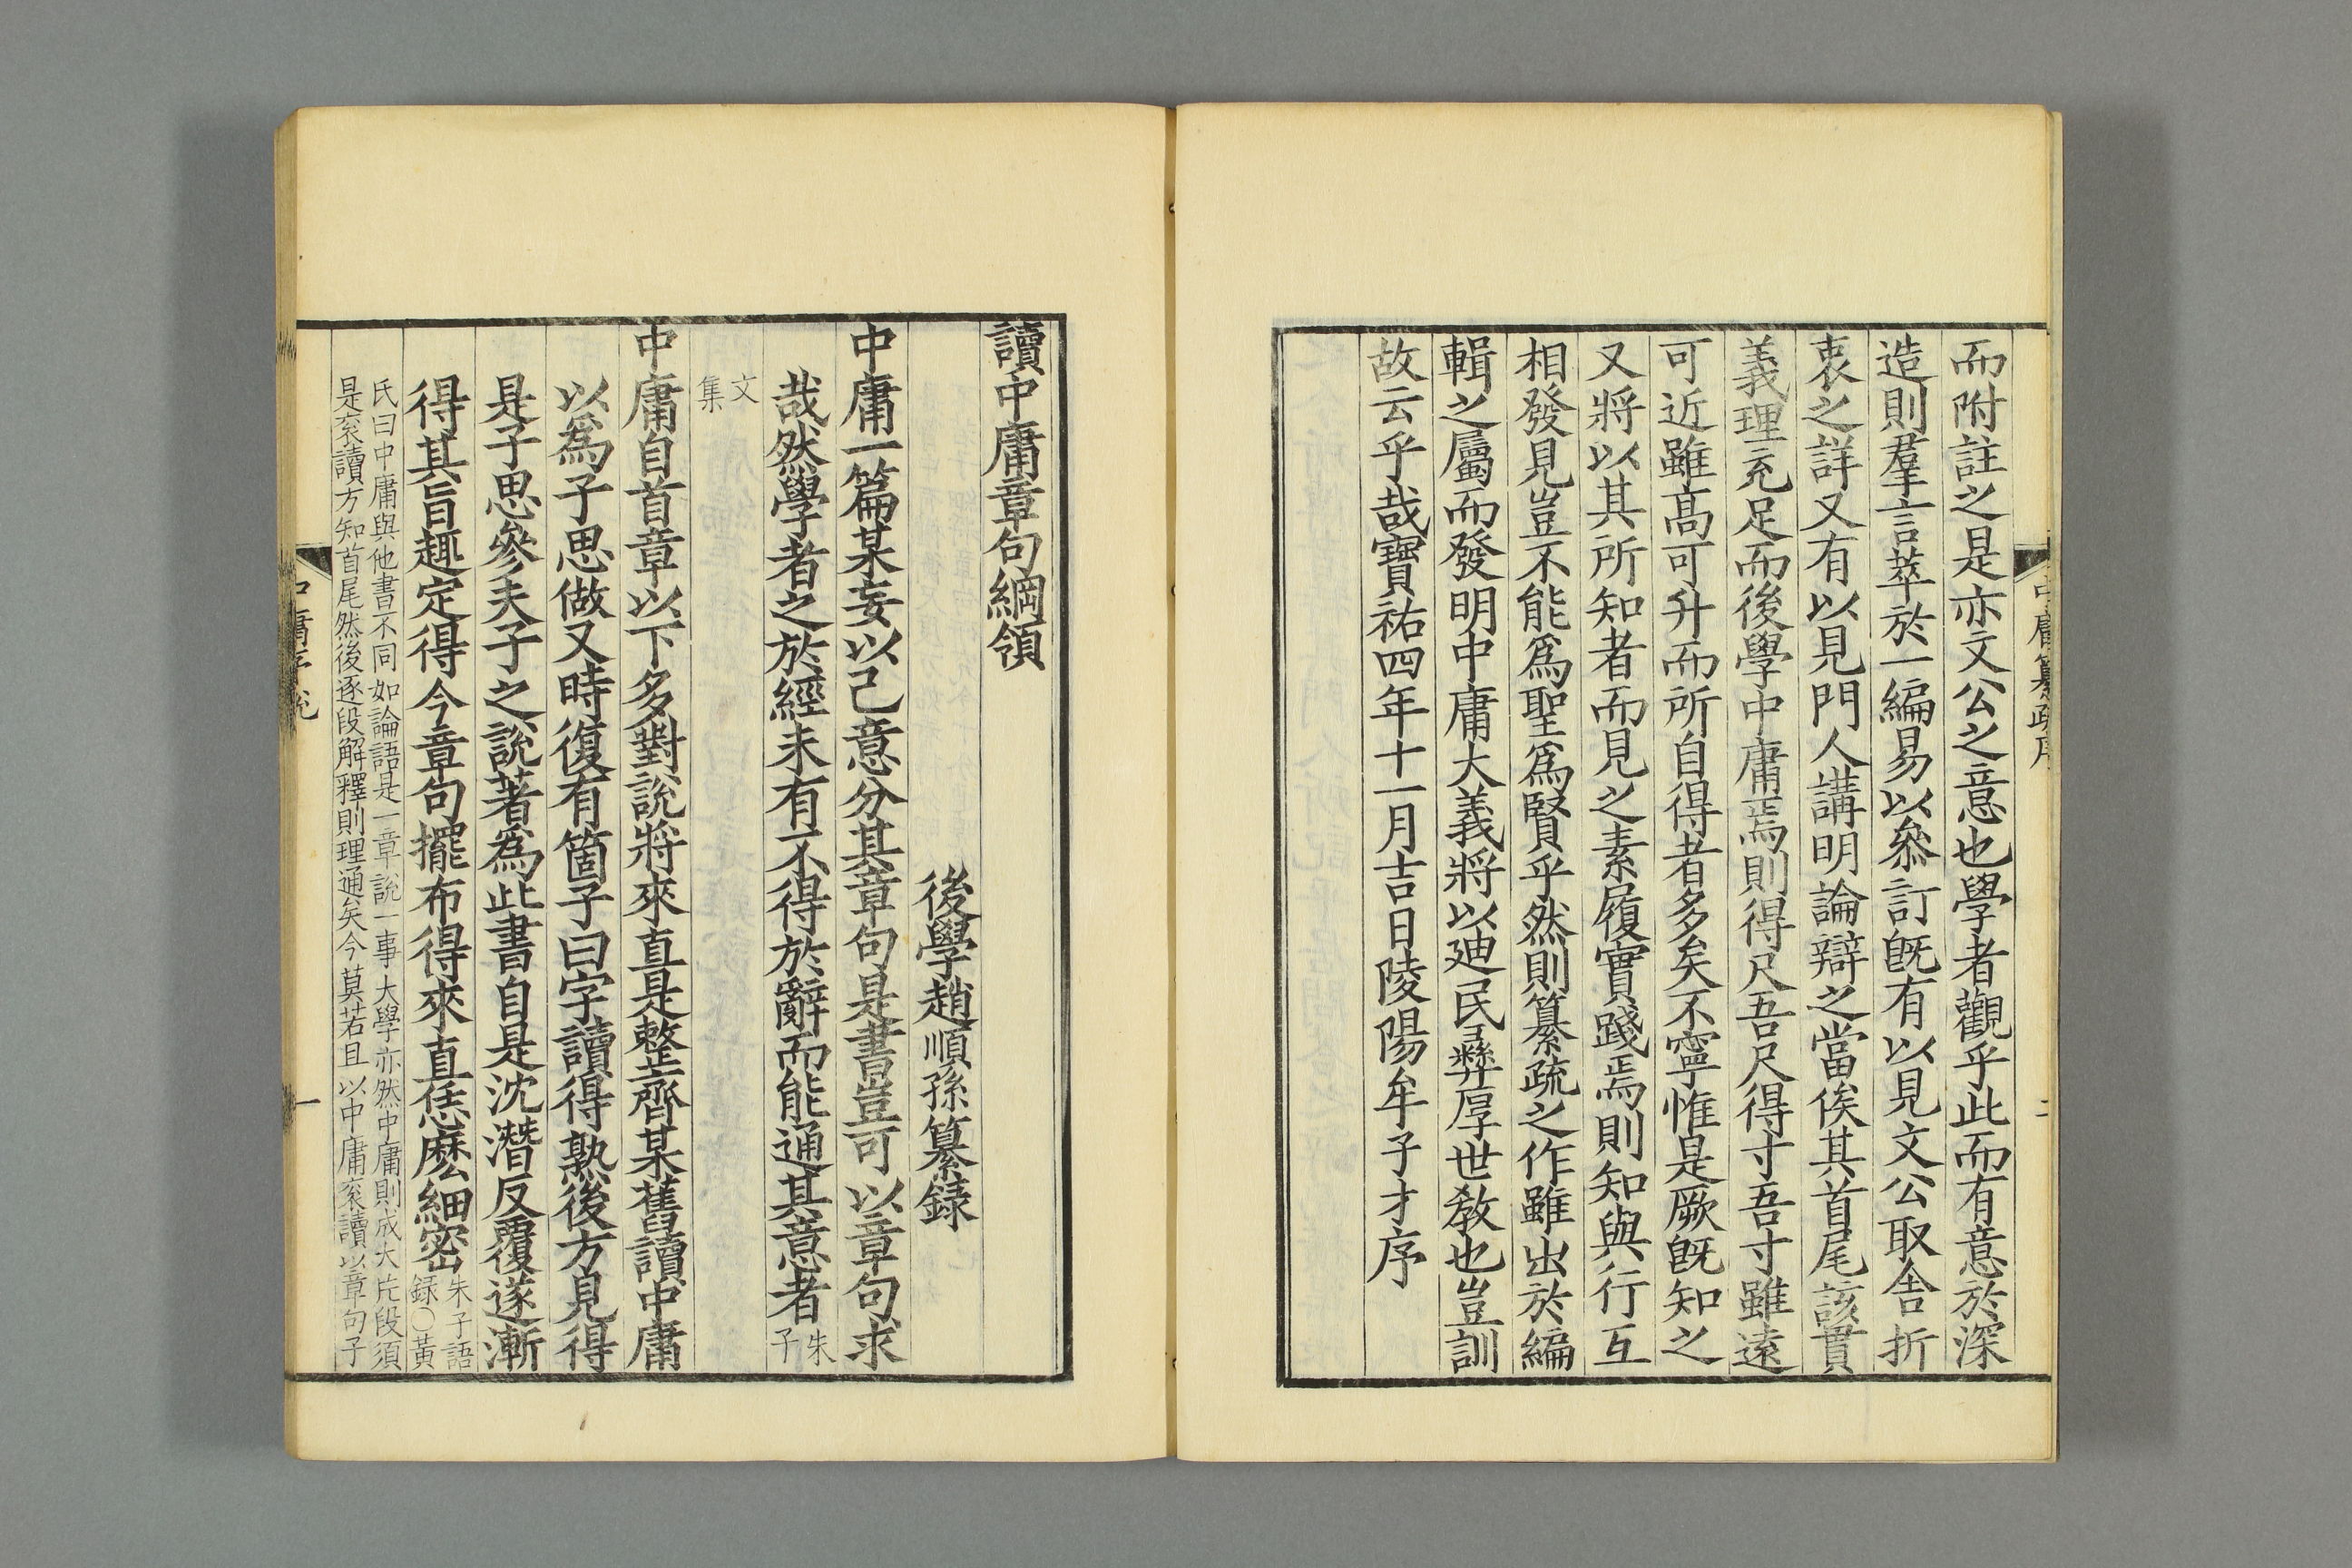 而附註之是亦文公之意也學者觀乎此而有意於深
造則羣言萃於一編易以叅訂旣有以見文公取舍折
衷之詳又有以見門人講明論辯之當俟其首尾該貫
義理充足而後學中庸焉則得尺吾尺得寸吾寸雖遠
可近雖髙可升而所自得者多矣不寧惟是厥旣知之
又將以其所知者而見之素履實踐焉則知與行互
相發見豈不能爲聖爲賢乎然則纂疏之作雖出於編
輯之屬而發明中庸大義將以廸民彛厚世教也豈訓
故云乎哉寶祐四年十一月吉日陵陽牟子才序
讀中庸章句綱領
後學趙順孫纂録
中庸一篇某妄以己意分其章句是書豈可以章句求
哉然學者之於經未有不得於辭而能通其意者朱子
文集
中庸自首章以下多對說將來直是整齊某舊讀中庸
以爲子思做又時復有箇子曰字讀得熟後方見得
是子思參夫子之說著爲此書自是沈潛反覆遂漸
得其旨趣定得今章句擺布得來直恁麽細密朱子語
録○黃
氏曰中庸與他書不同如論語是一章說一事大學亦然中庸則成大片段須
是衮讀方知首尾然後逐段解釋則理通矣今莫若且以中庸衮讀以章句子